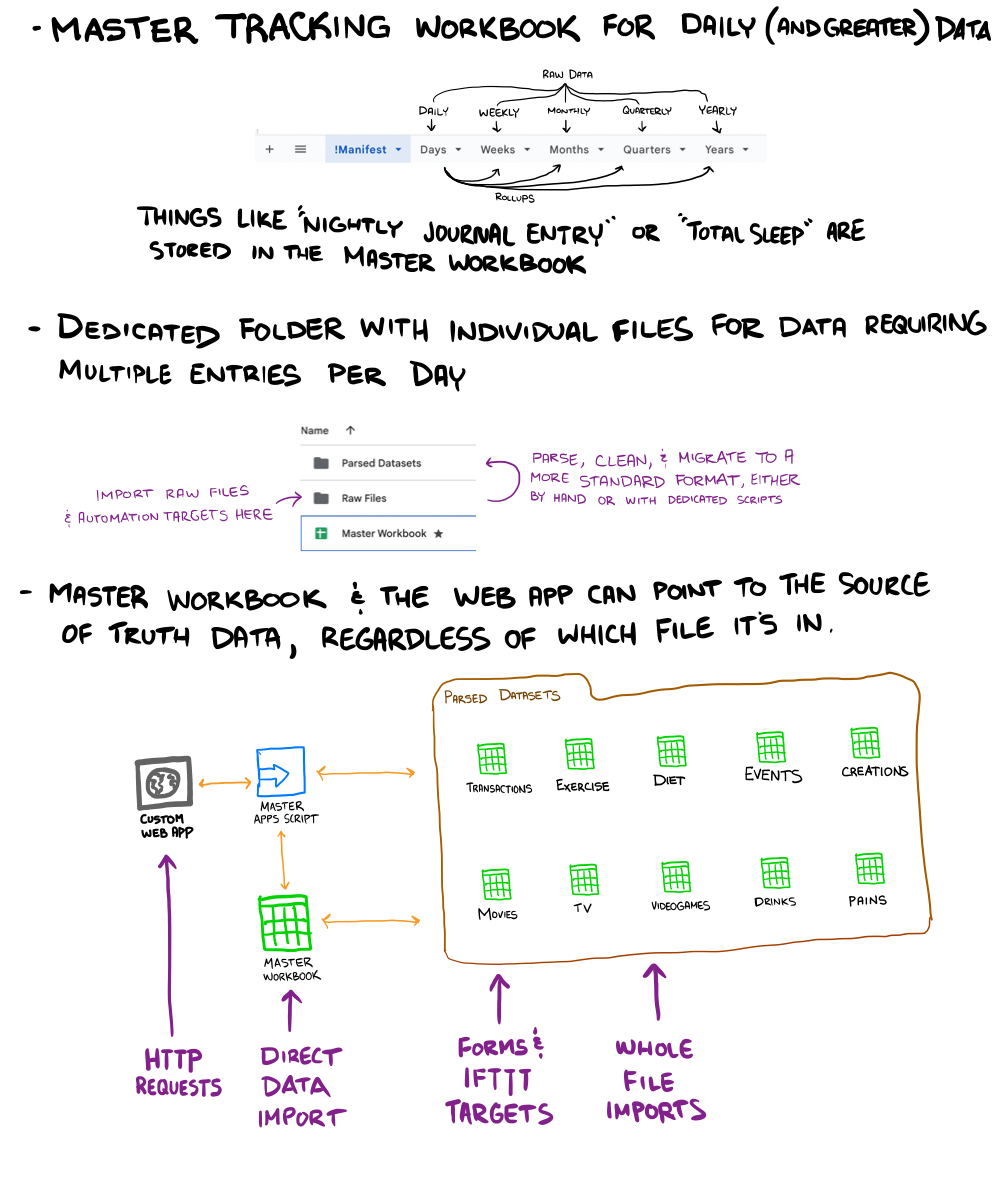 - MASTER TRACKING WORKBOOK FOR DAILY (AND GREATER) DATA
RAW DATA
DAILY WEEKLY MONTHLY QUARTERLY YEARLY
+ ≡ !Manifest Days Weeks Months Quarters Years
ROLLUPS
THINGS LIKE "NIGHTLY JOURNAL ENTRY" OR "TOTAL SLEEP" ARE
STORED IN THE MASTER WORKBOOK
- DEDICATED FOLDER WITH INDIVIDUAL FILES FOR DATA REQUIRING
MULTIPLE ENTRIES PER DAY
Name ↑
Parsed Datasets
Raw Files
Master Workbook ★
IMPORT RAW FILES
& AUTOMATION TARGETS HERE
PARSE, CLEAN, & MIGRATE TO A
MORE STANDARD FORMAT, EITHER
BY HAND OR WITH DEDICATED SCRIPTS
- MASTER WORKBOOK & THE WEB APP CAN POINT TO THE SOURCE
OF TRUTH DATA, REGARDLESS OF WHICH FILE IT'S IN.
PARSED DATASETS
TRANSACTIONS EXERCISE DIET EVENTS CREATIONS
MOVIES TV VIDEOGAMES DRINKS PAINS
CUSTOM
WEB APP
MASTER
APPS SCRIPT
MASTER
WORKBOOK
HTTP
REQUESTS
DIRECT
DATA
IMPORT
FORMS &
IFTTT
TARGETS
WHOLE
FILE
IMPORTS